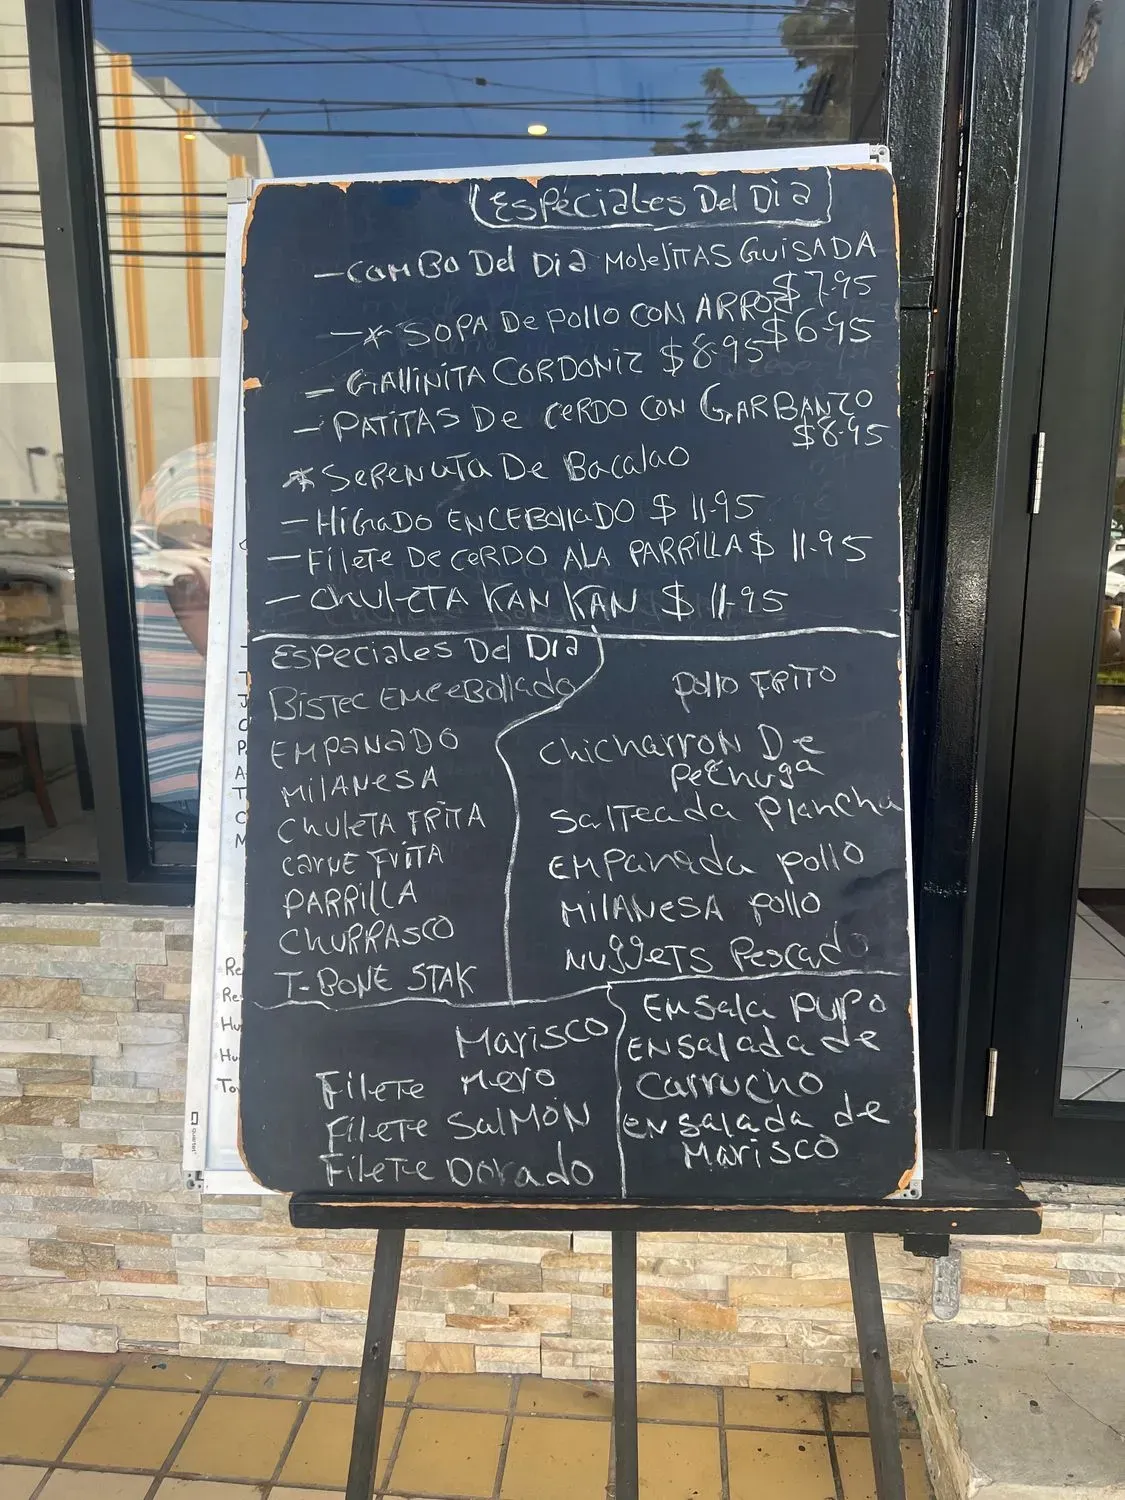 Especiales Del Dia
- Combo Del Dia Mollejitas Guisada
$7.95
- * Sopa De Pollo con Arros $6.95
- Gallinita Cordoniz $8.95
- Patitas De Cerdo con Garbanzo
$8.95
* Serenuta De Bacalao
- Higado Encebollado $11.95
- Filete De Cerdo Ala Parrilla $11.95
- Chuleta Kan Kan $11.95
Especiales Del Dia
Bistec Encebollado
Empanado
Milanesa
Chuleta Frita
Carne Frita
Parrilla
Churrasco
T-Bone Stak
Pollo Frito
Chicharron De
Pechuga
Salteada Plancha
Empanada Pollo
Milanesa Pollo
Nuggets Pescado
Marisco
Filete Mero
Filete Salmon
Filete Dorado
Ensala Pulpo
Ensalada de
Carrucho
Ensalada de
Marisco
quartet